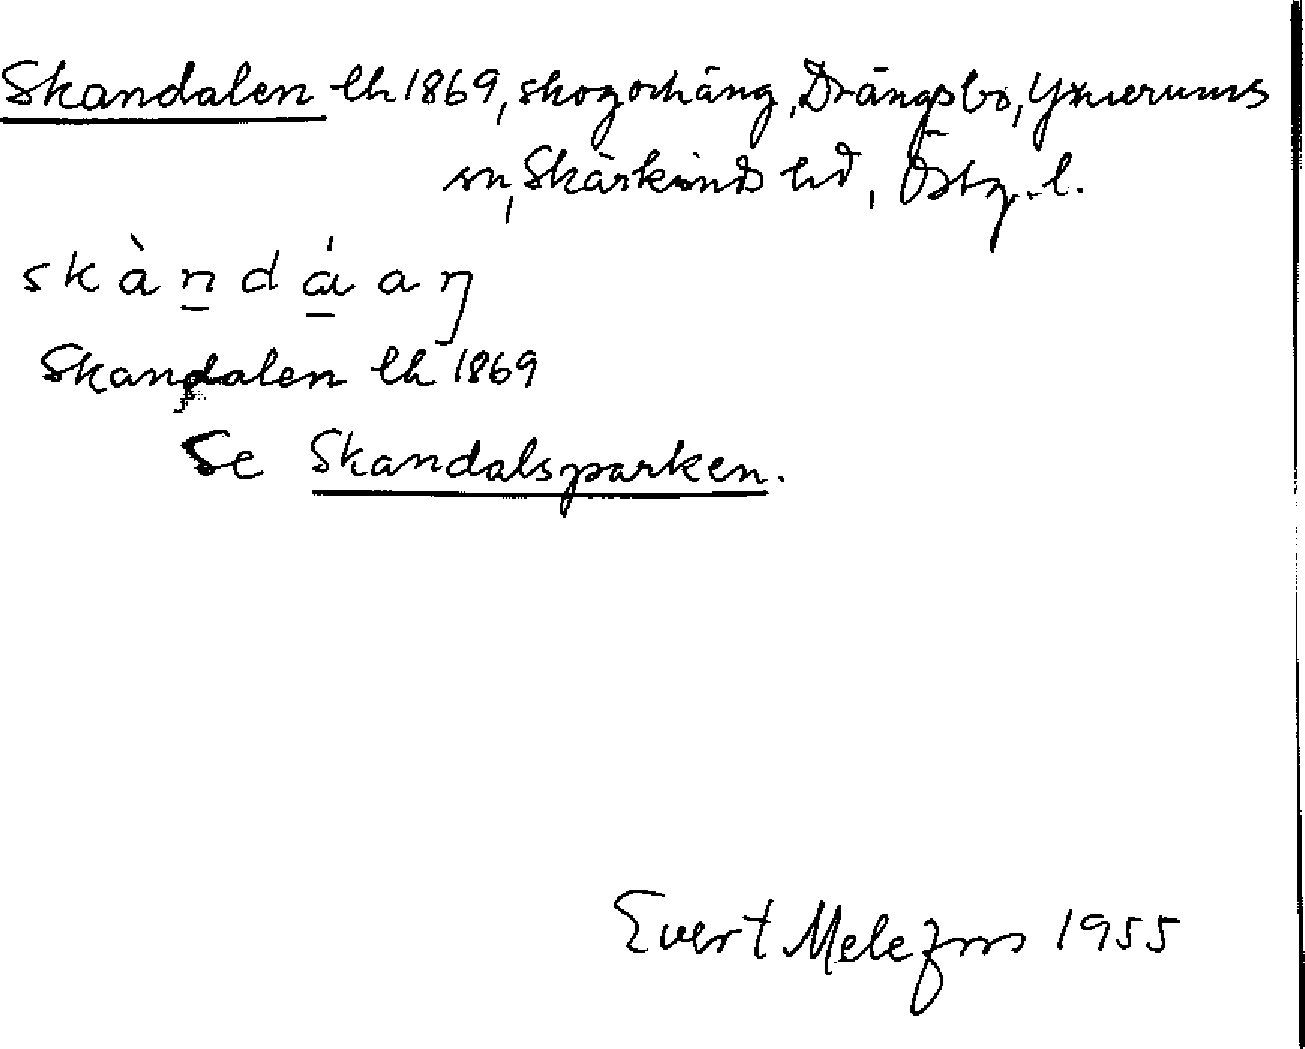 Skandalen lh 1869, skog o häng, Drängsbo, Yxnerums
sn, Skärkinds hd, Östg. l.
skàndáaŋ
Skandalen lh 1869
Se Skandalsparken.
Evert Melefors 1955